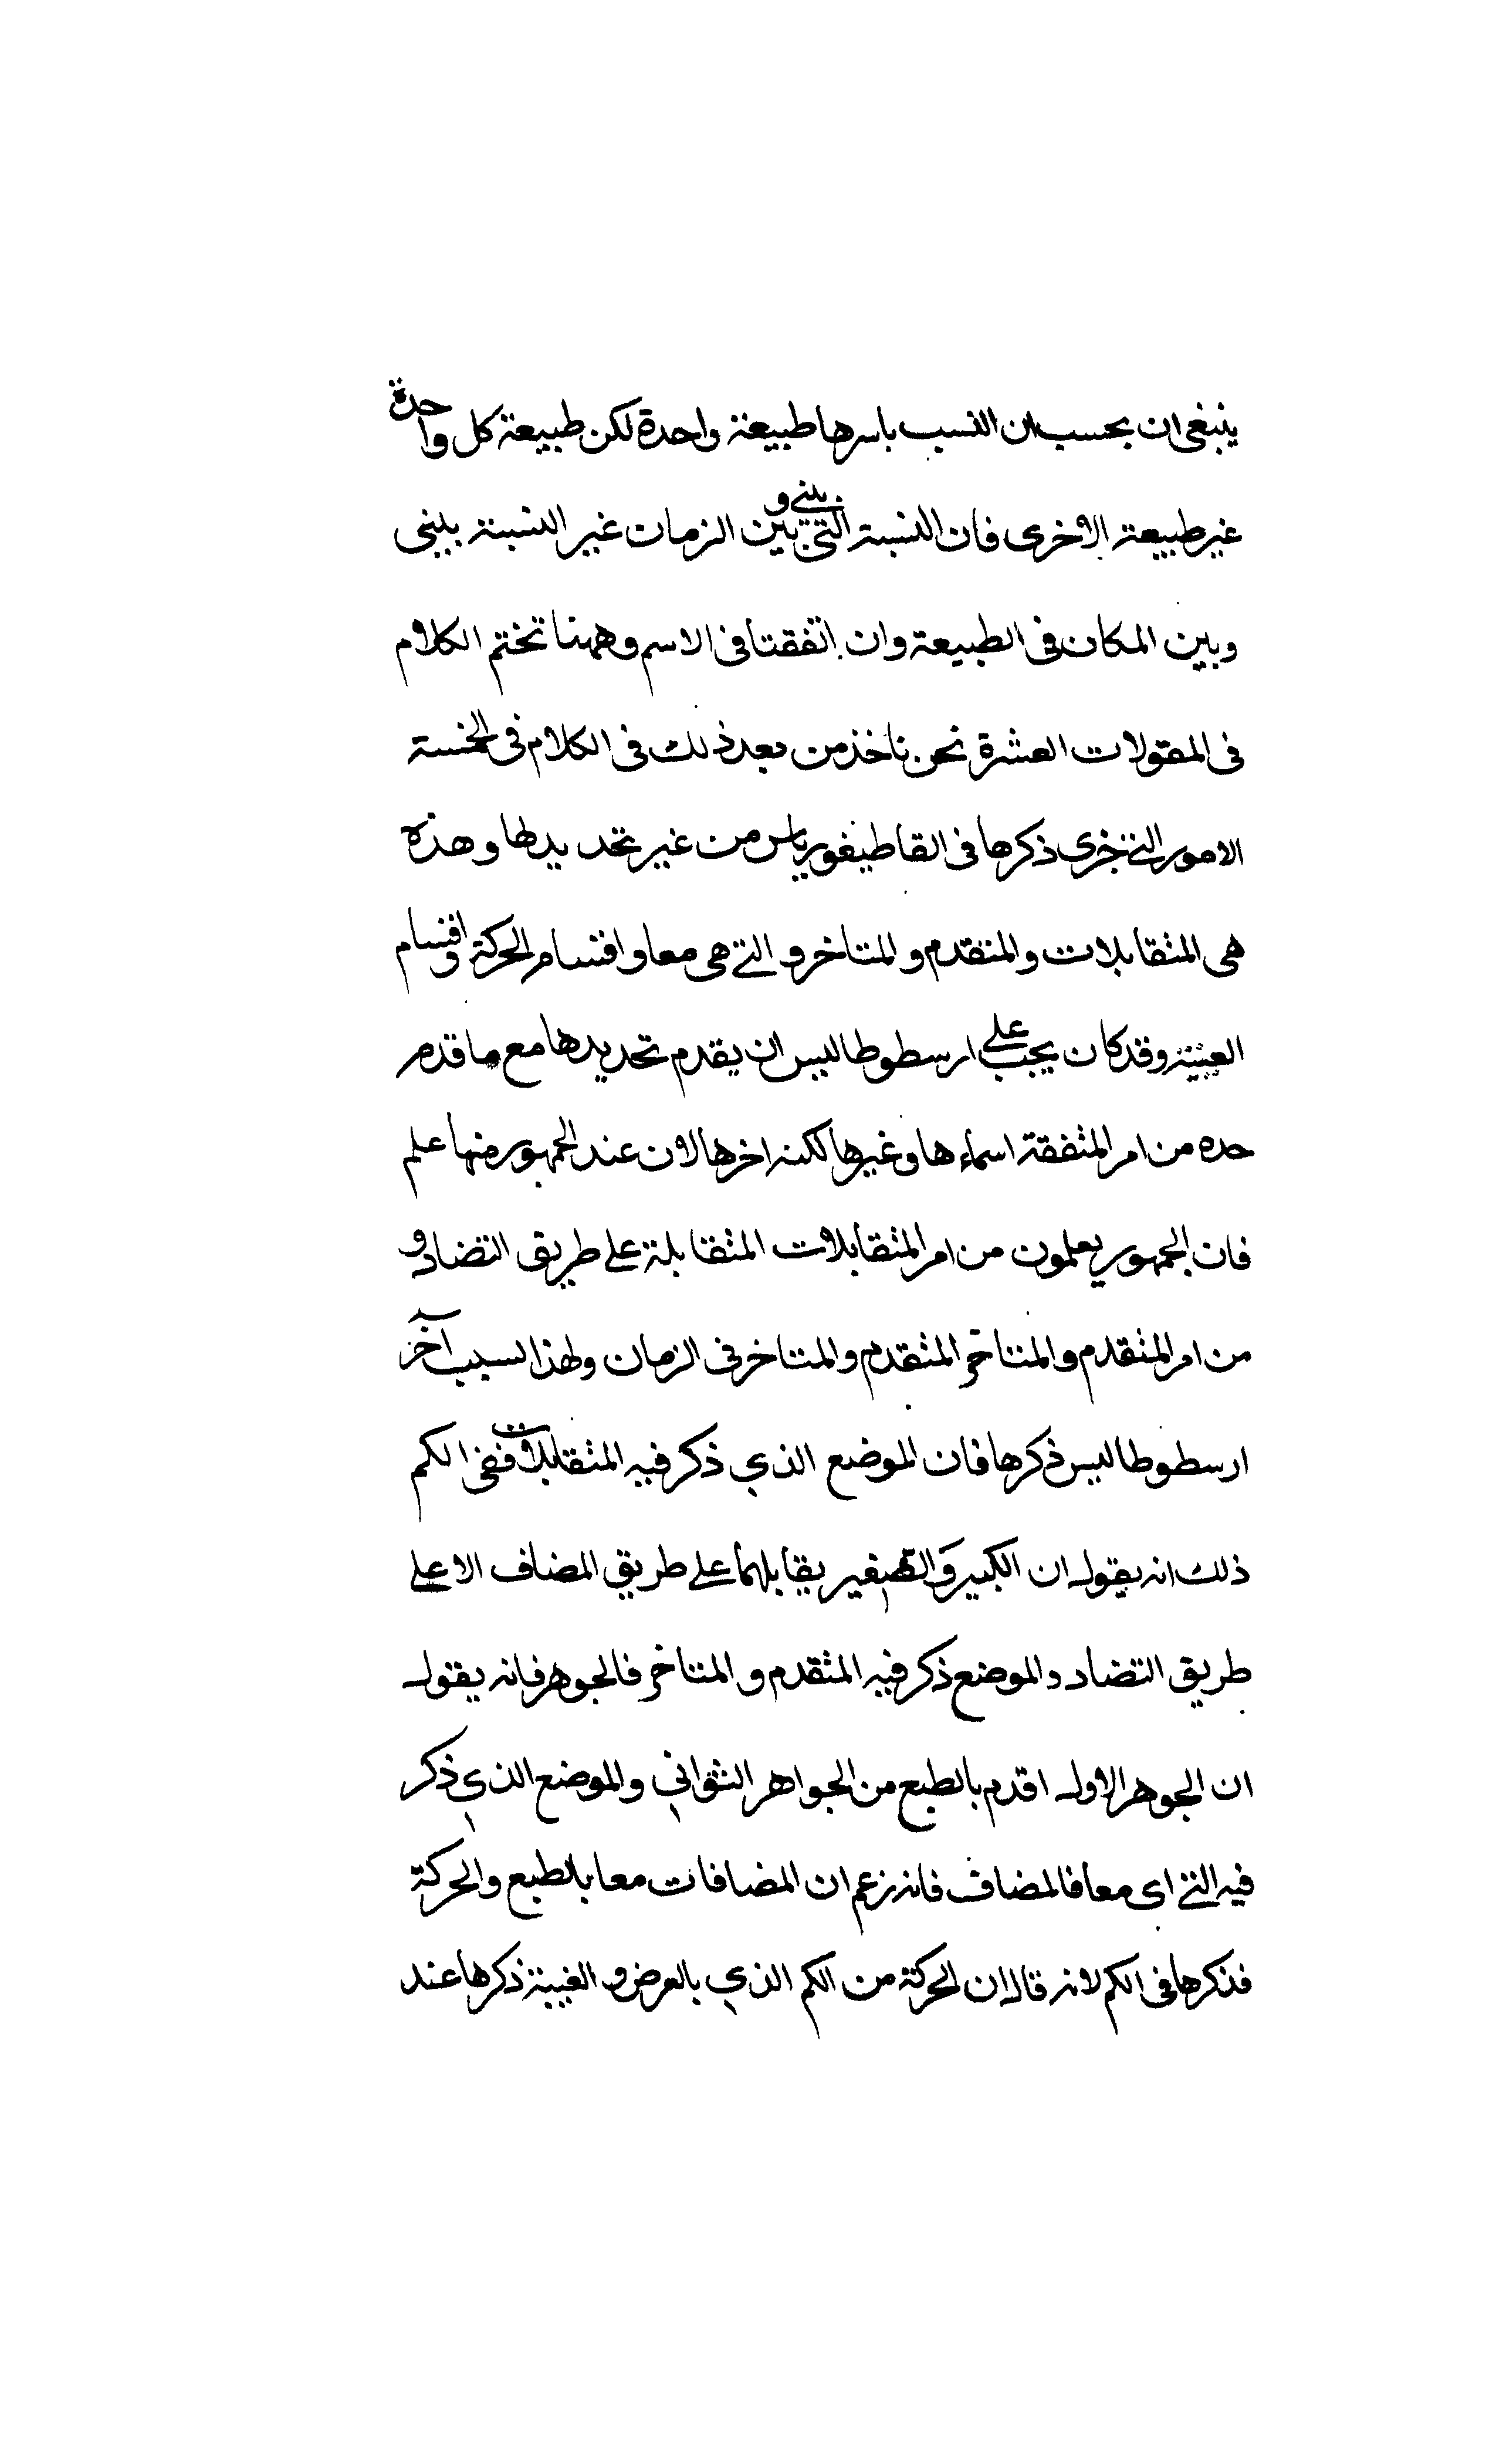 ينبغى ان يحسب ان النسب باسرها طبيعة واحدة لكن طبيعة كل واحدة
غير طبيعة الاخرى فان النسبة التى بينى و بين الزمان غير النسبة بينى
وبين المكان فى الطبيعة وان اتفقتا فى الاسم وههنا تختم الكلام
فى المقولات العشرة نحن ناخذ من بعد ذلك فى الكلام فى الخمسة
الامور التى جرى ذكرها فى القاطيغورياس من غير تحديد لها وهذه
هى المتقابلات والمتقدم والمتاخر و التى هى معا واقسام الحركة واقسام
القنية وقد كان يجب على ارسطوطاليس ان يقدم تحديدها مع ما قدم
حده من امر المتفقة اسماءها وغيرها لكنه اخرها لان عند الجمهور منها علم
فان الجمهور يعلمون من امر المتقابلات المتقابلة على طريق التضاد و
من امر المتقدم والمتاخر المتقدم والمتاخر فى الزمان ولهذا السبب آخر
ارسطوطاليس ذكرها فان الموضع الذي ذكر فيه المتقابلات ففى الكم
ذلك انه يقول ان الكبير و الصغير يقابلهما على طريق المضاف الا على
طريق التضاد والموضع ذكر فيه المتقدم والمتاخر فالجوهر فانه يقول
ان الجوهر الاول اقدم بالطبع من الجواهر الثواني والموضع الذي ذكر
فيه التى اى معا فالمضاف فانه زعم ان المضافات معا بالطبع والحركة
فذكرها فى الكم لانه قال ان الحركة من الكم الذي بالعرض و الغيبة ذكرها عند